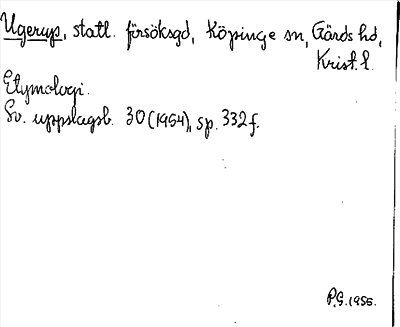 Ugerup, statl. försöksgd, Köpinge sn, Gärds hd,
Krist. l.
Etymologi.
Sv. uppslagsb. 30 (1954), sp. 332 f.
P.G. 1955.